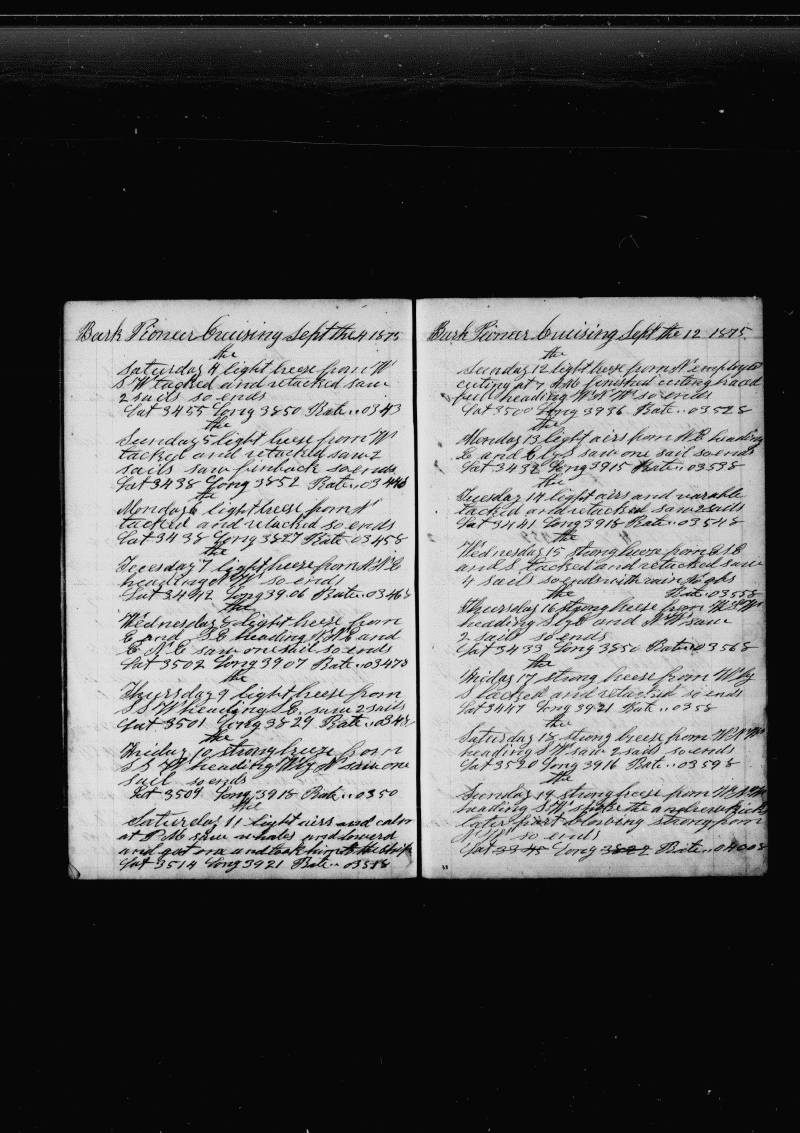 Bark Pioneer Cruising Sept the 4 1875
the
Saturday 4 light breese from W
S W tacked and retacked saw
2 sails so ends
Lat 3455 Long 3850 Rate .. 0343
the
Sunday 5 light breese from W
tacked and retacked saw 2
sails saw finback so ends
Lat 3438 Long 3852 Rate ..
the
Monday 6 light breese from
tacked and retacked so ends
Lat 3438 Long 3827 Rate .. 03458
the
Tuesday 7 light breese from N N E
heading W so ends
Lat 3442 Long 3906 Rate .. 03468
the
Wednesday 8 light breese from
E and S E heading N N E and
E N E saw one sail so ends
Lat 3502 Long 3907 Rate .. 03478
the
Thursday 9 light breese from
S S W heading S E saw 2 sails
Lat 3501 Long 3829 Rate ..
the
Friday 10 strong breese from
S S W heading W by N saw one
sail so ends
Lat 3509 Long 3918 Rate .. 0350
the
Saturday 11 light airs and calm
at P M saw whales and lowerd
and got one and took him to the ship
Lat 3514 Long 3921 Rate .. 03518
Bark Pioneer Cruising Sept the 12 1875
the
Sunday 12 light breese from N employed
cuting at 7 AM finished cuting braced
full heading W N W so ends
Lat 3500 Long 3936 Rate .. 03528
the
Monday 13 light airs from N E heading
E and E by S saw one sail so ends
Lat 3432 Long 3915 Rate .. 03538
the
Tuesday 14 light airs and varable
tacked and retacked saw 2 sails
Lat 3441 Long 3918 Rate .. 03548
the
Wednesday 15 strong breese from E S E
and S tacked and retacked saw
4 sails so ends with rain
the Rate .. 03558
Thursday 16 strong breese from W S W
heading S by E and N W saw
2 sails so ends
Lat 3433 Long 3850 Rate .. 03568
the
Friday 17 strong breese from W by
S tacked and retacked so ends
Lat 3447 Long 3921 Rate .. 0358
the
Saturday 18 strong breese from W N W
heading S W saw 2 sails so ends
Lat 3520 Long 3916 Rate .. 03598
the
Sunday 19 strong breese from
heading S W spoke the andrew hicks
later part blowing strong from
N W so ends
Lat 3345 Long Rate .. 04008